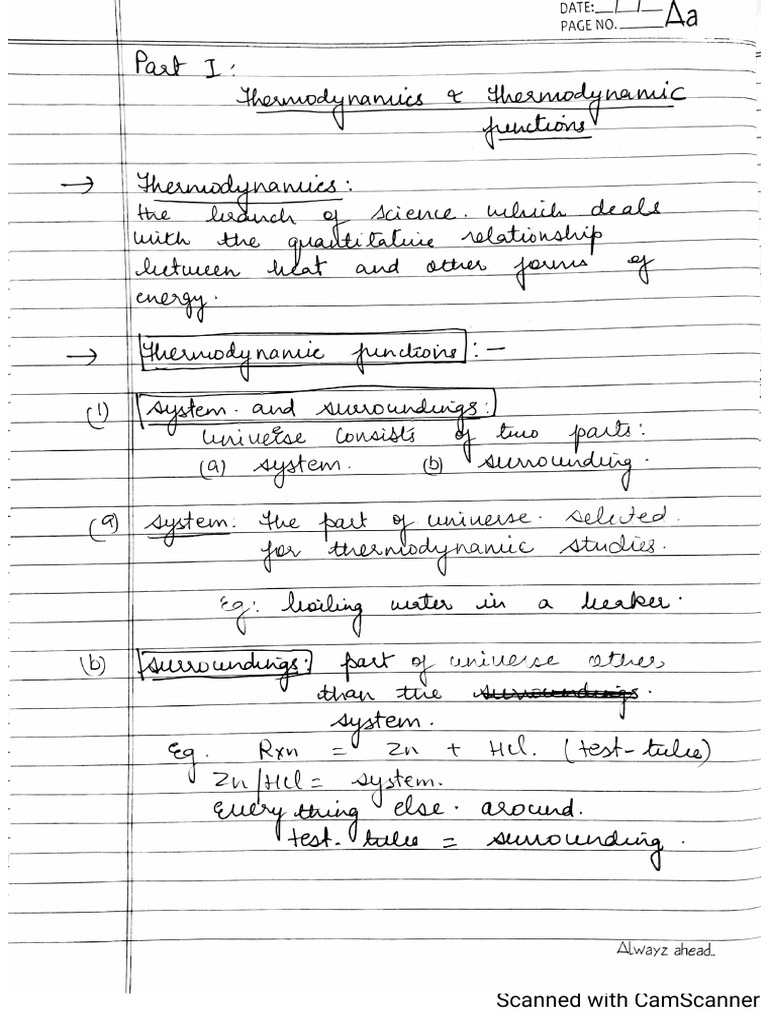 DATE:__/__/__
PAGE NO.______
Aa
Part I:
Thermodynamics & Thermodynamic
functions
→ Thermodynamics:
the branch of science which deals
with the quantitative relationship
between heat and other forms of
energy.
→ Thermodynamic functions :-
(1) System and surroundings:
Universe consists of two parts:
(a) system. (b) surrounding.
(a) system: The part of universe selected.
for thermodynamic studies.
Eg: boiling water in a beaker.
(b) surroundings: part of universe other
than the surroundings.
system.
Eg. Rxn = Zn + Hcl. (test-tube)
Zn/Hcl = system.
Every thing else around.
test-tube = surrounding.
Alwayz ahead..
Scanned with CamScanner